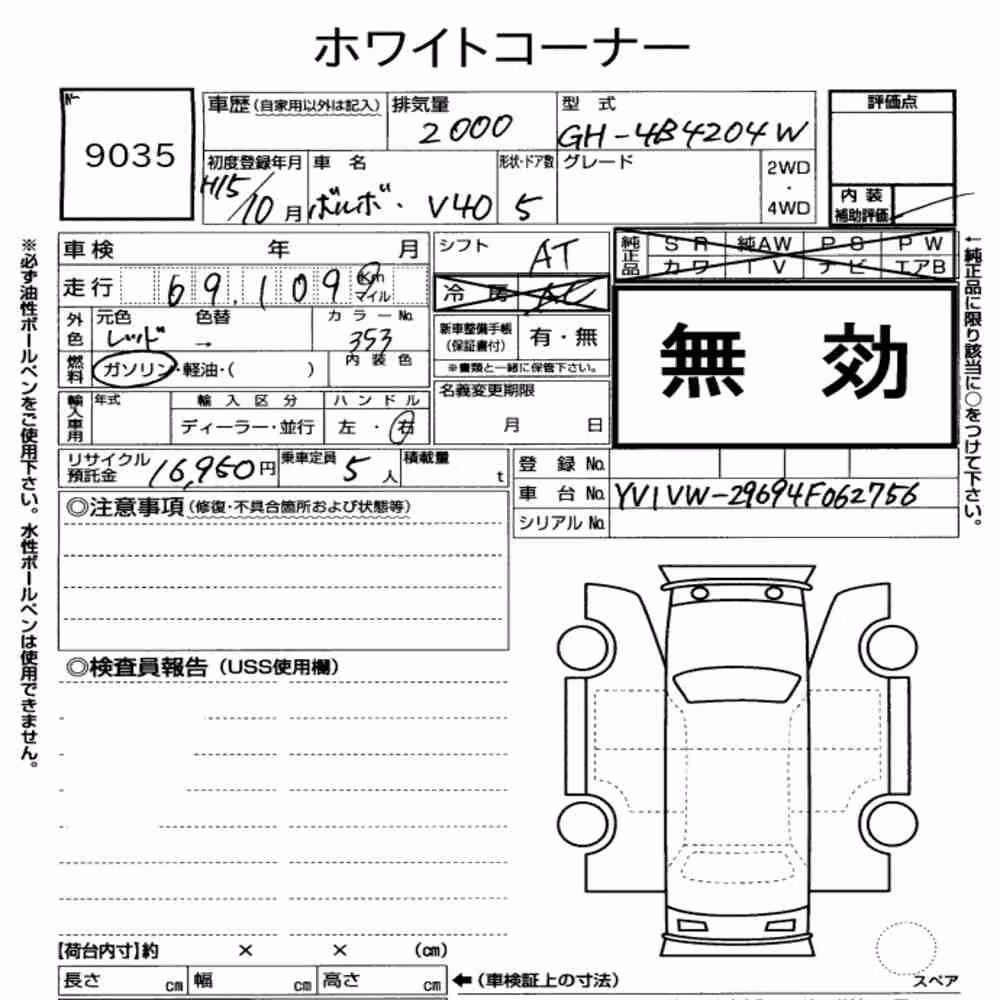 ホワイトコーナー
№
9035
車歴(自家用以外は記入)
排気量
2000
型 式
GH-4B4204W
評価点
初度登録年月
H15/10月
車 名
ボルボ・ V40
形状・ドア数
5
グレード
2WD
・
4WD
内 装
補助評価
車 検 年 月
走 行 69,109 Km
マイル
シフト
AT
冷 房 AC
純正品
S R 純AW P S P W
カワ T V ナビ エアB
無 効
外色
元色 色替
レッド →
カラー№
353
内 装 色
燃料
ガソリン・軽油・( )
新車整備手帳
(保証書付)
有・無
※書類と一緒に保管下さい。
輸入車用
年式
輸 入 区 分
ディーラー・並行
ハ ン ド ル
左 ・ 右
名義変更期限
月 日
リサイクル
預託金
16,950円
乗車定員
5 人
積載量
t
登 録 №
車 台 № YV1VW-29694F062756
シリアル №
◎注意事項(修復・不具合箇所および状態等)
◎検査員報告(USS使用欄)
【荷台内寸】約 × × (㎝)
長さ ㎝ 幅 ㎝ 高さ ㎝
←(車検証上の寸法)
スペア
※必ず油性ボールペンをご使用下さい。水性ボールペンは使用できません。
←純正品に限り該当に○をつけて下さい。